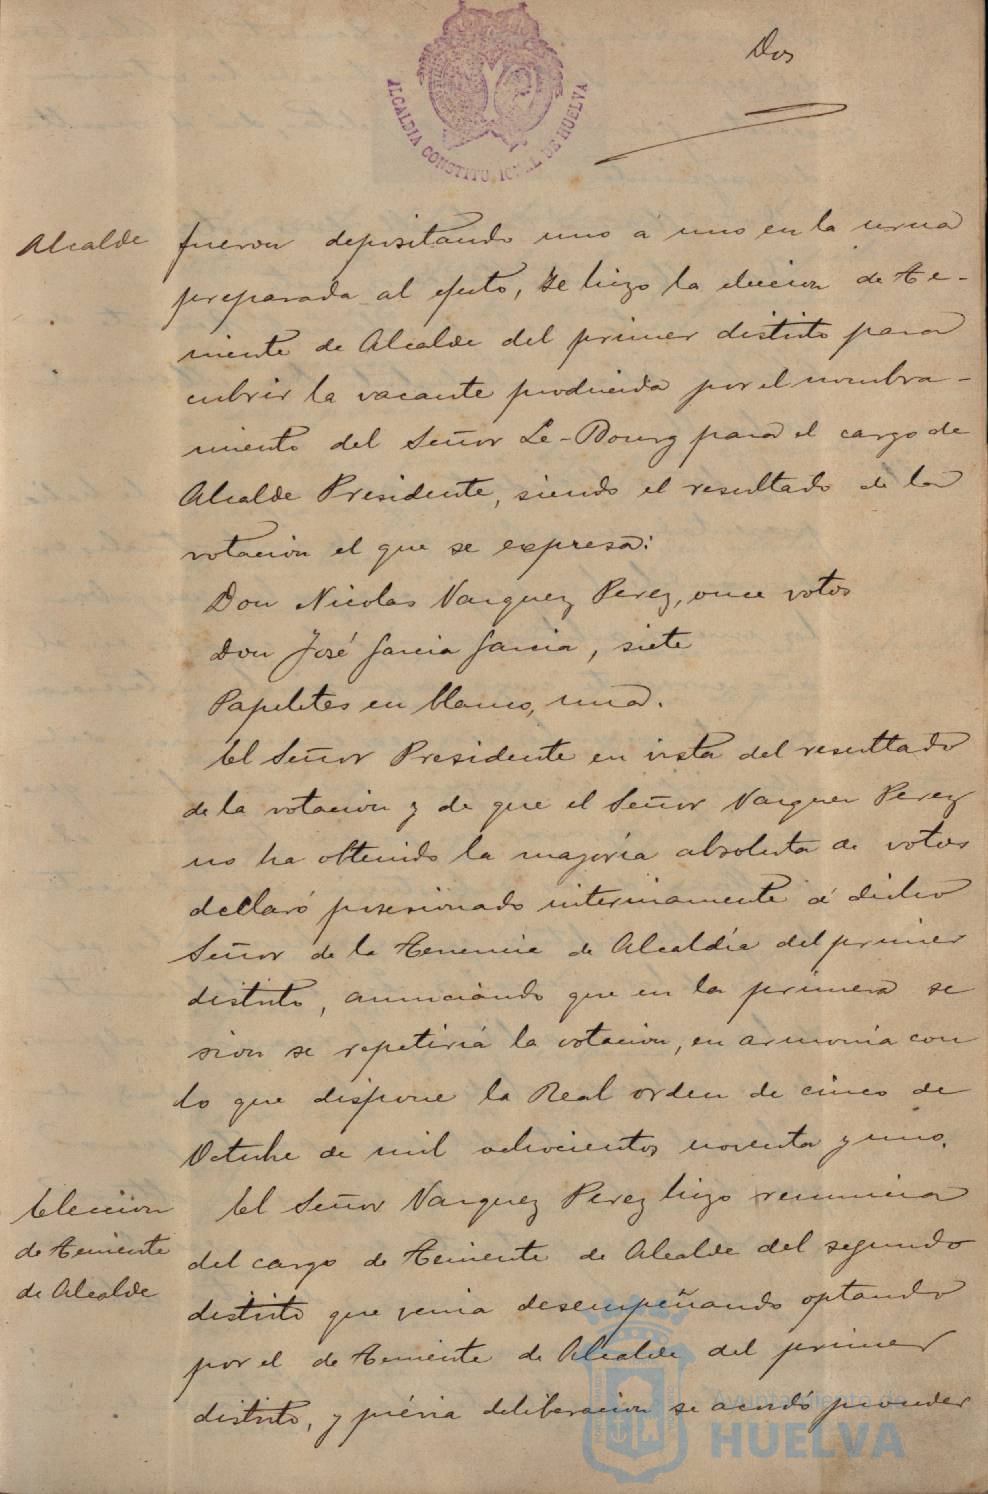 Dos
ALCALDIA CONSTITUCIONAL DE HUELVA
Alcalde
fueron depositando uno á uno en la urna
preparada al efecto, se hizo la eleccion de Te-
niente de Alcalde del primer distrito para
cubrir la vacante producida por el nombra-
miento del Señor Le-Bourg para el cargo de
Alcalde Presidente, siendo el resultado de la
votacion el que se expresa:
Don Nicolas Vazquez Perez, once votos
Don José Garcia Garcia, siete
Papeletas en blanco, una.
El Señor Presidente en vista del resultado
de la votacion y de que el Señor Vazquez Perez
no ha obtenido la mayoría absoluta de votos
declaró posesionado interinamente á dicho
Señor de la Tenencia de Alcaldía del primer
distrito, anunciando que en la primera se
sion se repetiriá la votacion, en armonía con
lo que dispone la Real orden de cinco de
Octubre de mil ochocientos noventa y uno.
Eleccion
de Teniente
de Alcalde
El Señor Vazquez Perez hizo renuncia
del cargo de Teniente de Alcalde del segundo
distrito que venia desempeñando optando
por el de Teniente de Alcalde del primer
distrito, y prévia deliberacion se acordó proceder
Ayuntamiento de
HUELVA